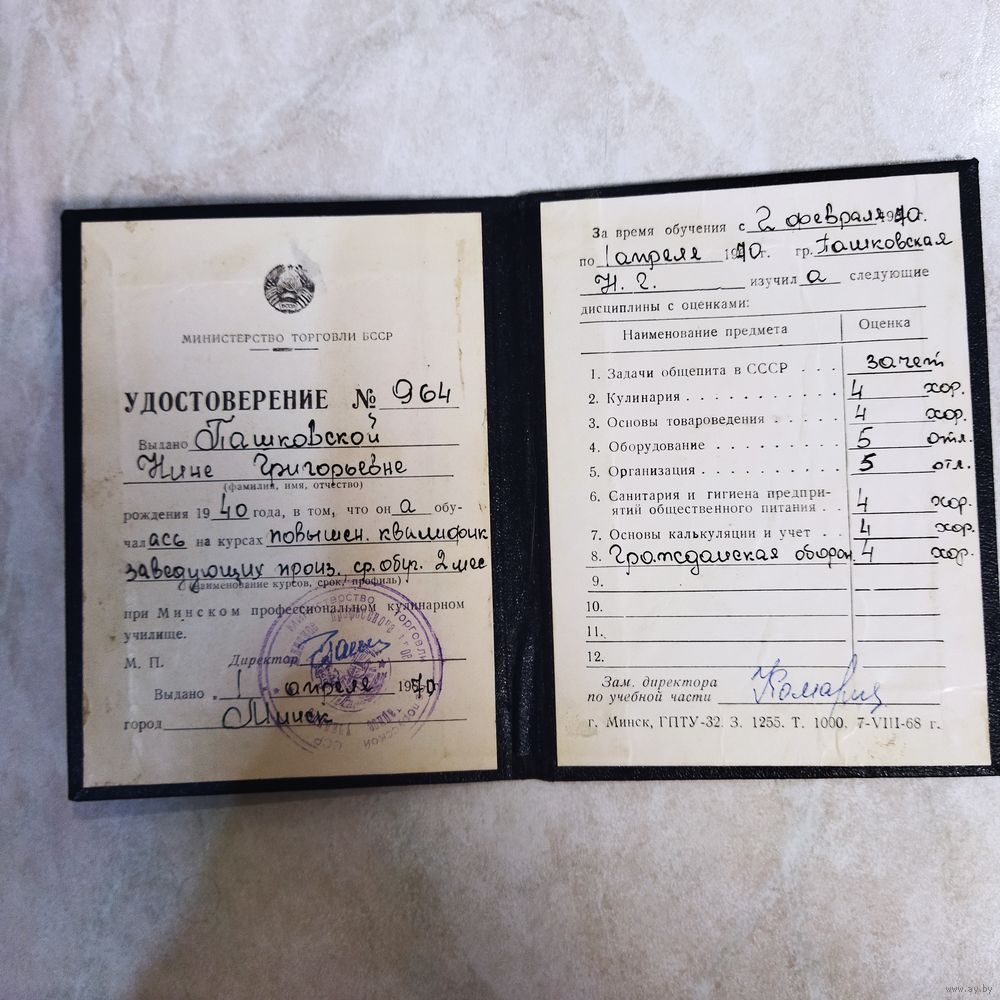 МИНИСТЕРСТВО ТОРГОВЛИ БССР
УДОСТОВЕРЕНИЕ № 964
Выдано Пашковской
Нине Григорьевне
(фамилия, имя, отчество)
рождения 1940 года, в том, что он а обу-
чалась на курсах повышен. квалифик
заведующих произ. ср. обуч. 2 мес
(наименование курсов, срок, профиль)
при Минском профессиональном кулинарном
училище.
М. П. Директор
Выдано „1 апреля 1970
город Минск
За время обучения с 2 февраля 1970г.
по 1 апреля 1970г. гр. Пашковская
Н. Г. изучил а следующие
дисциплины с оценками:
Наименование предмета Оценка
1. Задачи общепита в СССР . . . зачет
2. Кулинария . . . . . . . . . . 4 хор.
3. Основы товароведения . . . . 4 хор.
4. Оборудование . . . . . . . . . 5 отл.
5. Организация . . . . . . . . . . 5 отл.
6. Санитария и гигиена предпри-
ятий общественного питания . . 4 хор.
7. Основы калькуляции и учет . . 4 хор.
8. Гражданская оборон 4 хор.
9.
10.
11.
12.
Зам. директора
по учебной части
г. Минск, ГПТУ-32. З. 1255. Т. 1000. 7-VIII-68 г.
www.ay.by